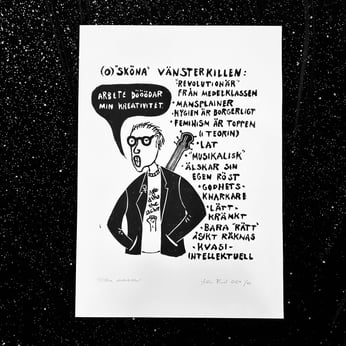 (O)"SKÖNA" VÄNSTERKILLEN:
ARBETE DÖÖÖDAR
MIN KREATIVITET.
"REVOLUTIONÄR"
FRÅN MEDELKLASSEN
• MANSPLAINER
• HYGIEN ÄR BORGERLIGT
• FEMINISM ÄR TOPPEN
(I TEORIN)
• LAT
• "MUSIKALISK"
• ÄLSKAR SIN
EGEN RÖST
• GODHETS-
KNARKARE
• LÄTT-
KRÄNKT
• BARA "RÄTT"
ÅSIKT RÄKNAS
• KVASI-
INTELLEKTUELL